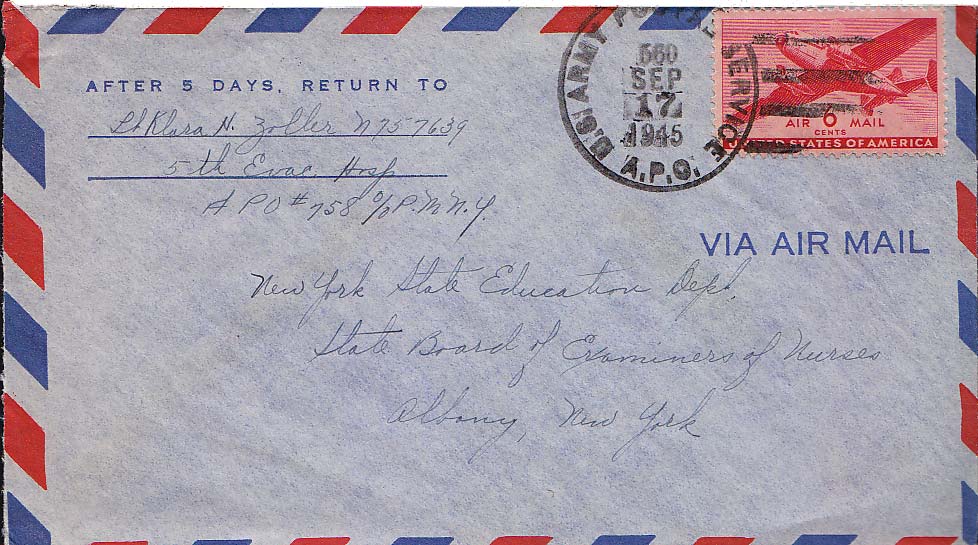 AFTER 5 DAYS, RETURN TO
Lt Klara N. Zoller N757639
5th Evac Hosp
A PO # 758 c/o P.M. N.Y.
U.S. ARMY POSTAL SERVICE
560
SEP
17
1945
A.P.O.
AIR 6 MAIL
CENTS
UNITED STATES OF AMERICA
VIA AIR MAIL
New York State Education Dept.
State Board of Examiners of Nurses
Albany, New York